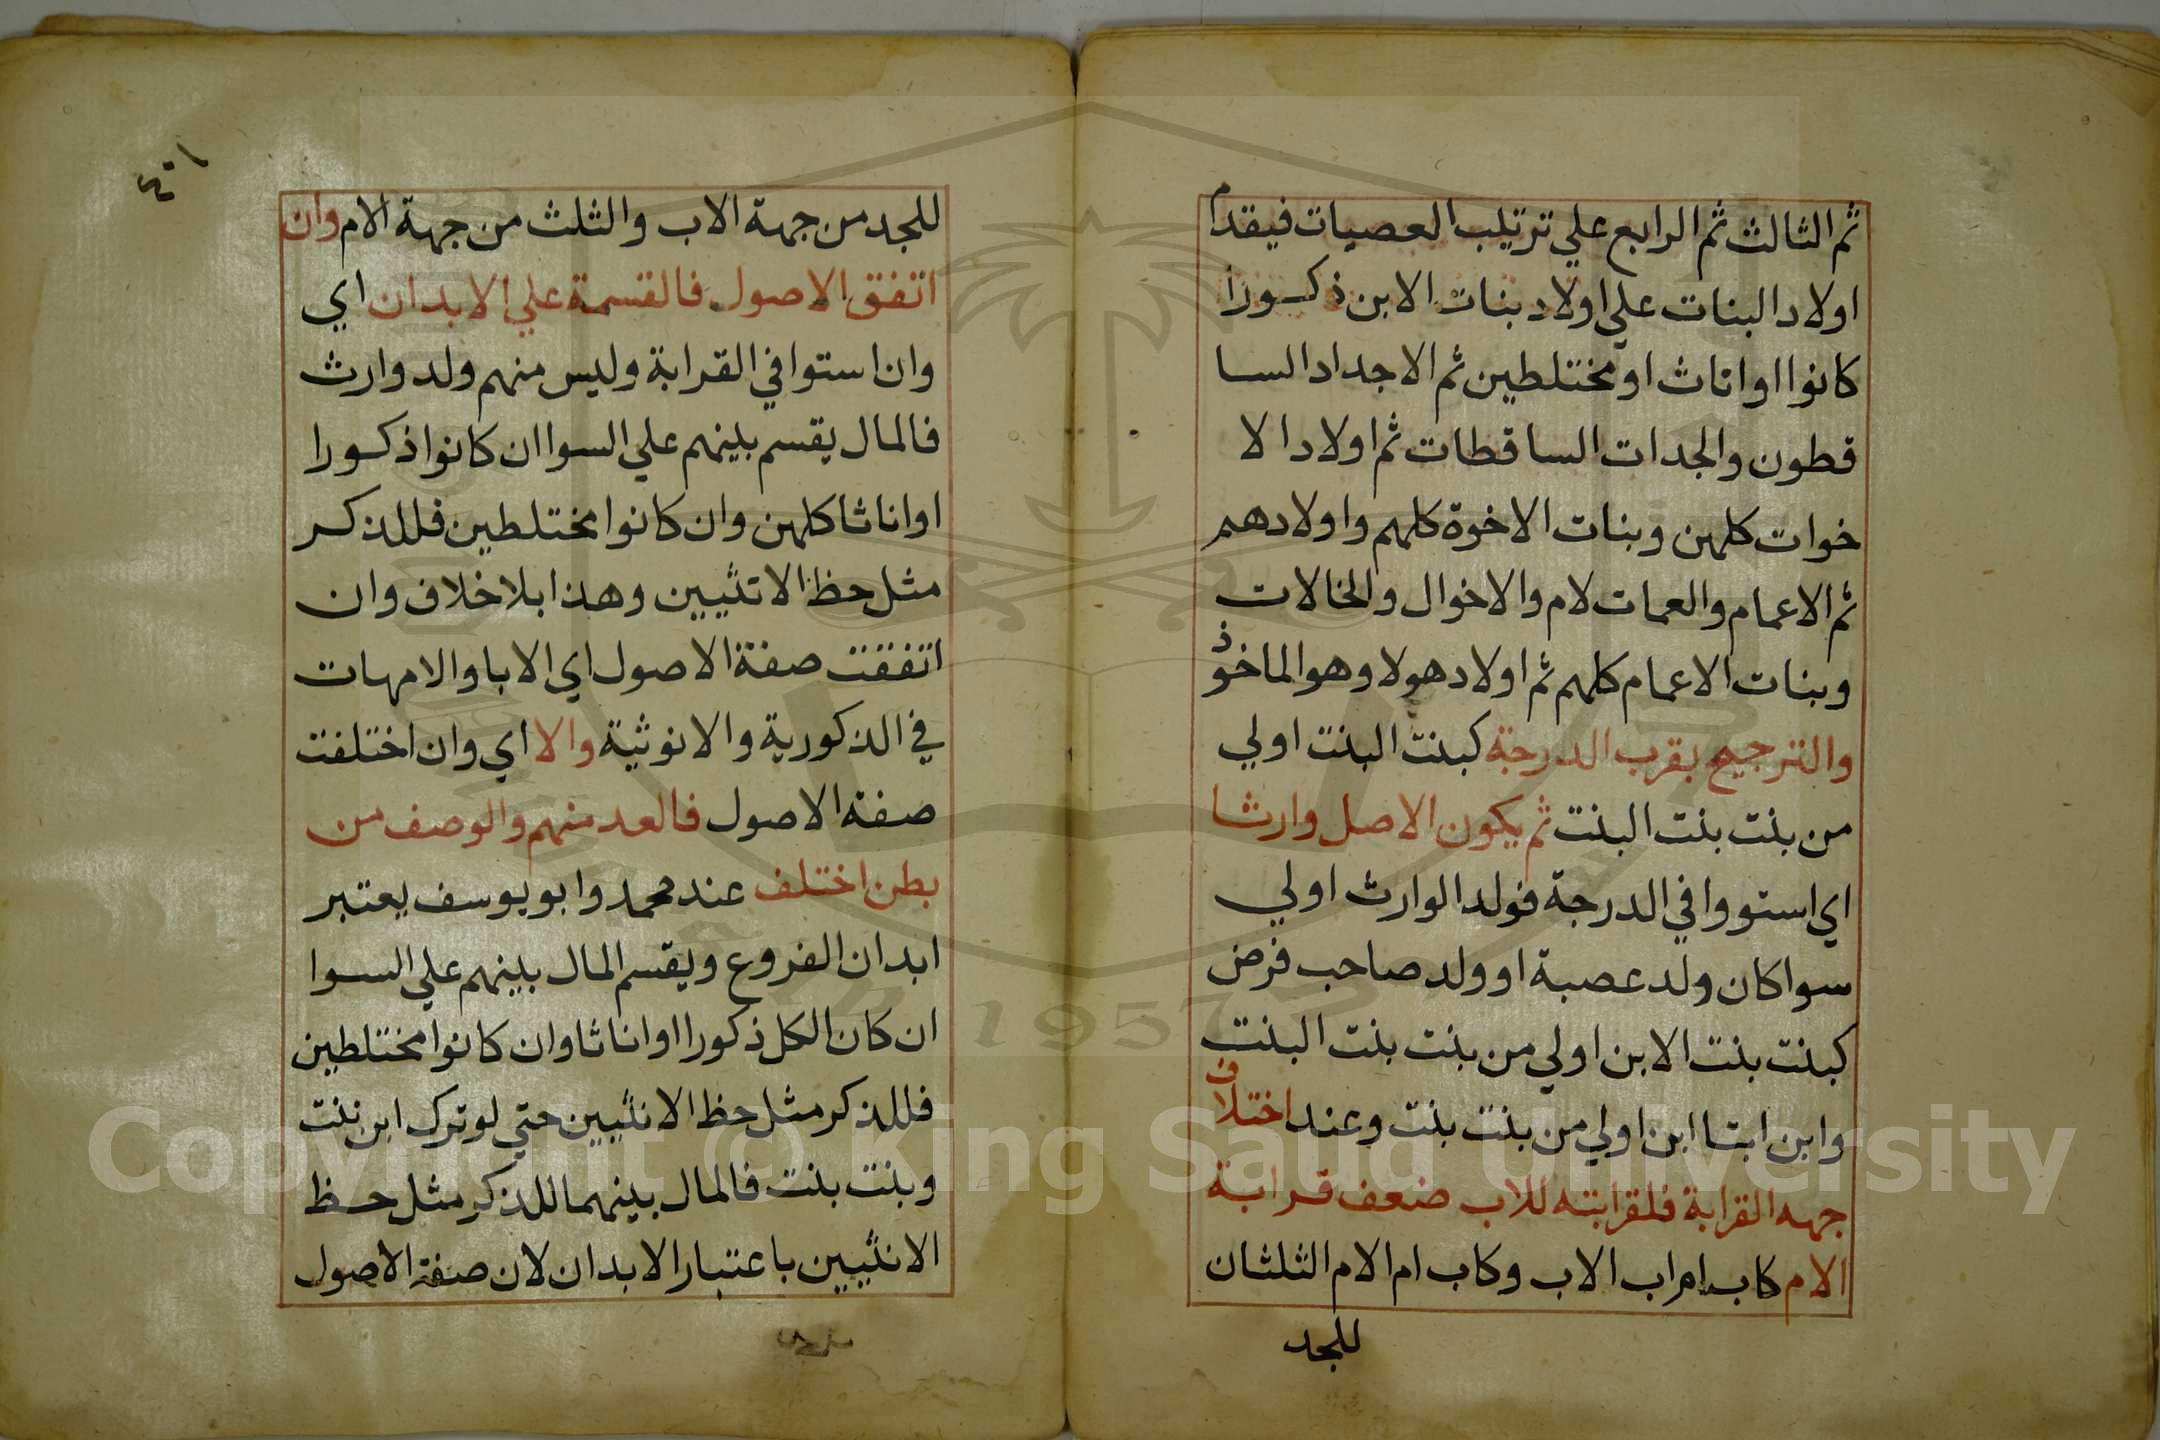 ثم الثالث ثم الرابع علي ترتيب العصبات فيقدم
اولاد البنات علي اولاد بنات الابن ذكورا
كانوا او اناث او مختلطين ثم الاجداد السا
قطون والجدات الساقطات ثم اولاد الا
خوات كلهن وبنات الاخوة كلهم واولادهم
ثم الاعمام والعمات لام والاخوال والخالات
وبنات الاعمام كلهم ثم اولاد هولا وهو الماخوذ
والترجيح بقرب الدرجة كبنت البنت اولي
من بنت بنت البنت ثم يكون الاصل وارثا
اي استووا في الدرجة فولد الوارث اولي
سوا كان ولد عصبة او ولد صاحب فرض
كبنت بنت الابن اولي من بنت بنت البنت
وابن ابتا ابن اولي من بنت بنت وعند اختلاف
جهه القرابة فلقرابته للاب ضعف قرابة
الام كاب ام اب الاب وكاب ام الام الثلثان
للجد
٤٠١
للجد من جهة الاب والثلث من جهة الام وان
اتفق الاصول فالقسمة علي الابدان اي
وان استوا في القرابة وليس منهم ولد وارث
فالمال يقسم بينهم علي السوا ان كانوا ذكورا
او اناثا كلهن وان كانوا مختلطين فللذكر
مثل حظ الانثيين وهذا بلا خلاف وان
اتفقت صفة الاصول اي الابا والامهات
في الذكورية والانوثية والا اي وان اختلفت
صفة الاصول فالعد منهم والوصف من
بطن اختلف عند محمد وابو يوسف يعتبر
ابدان الفروع ويقسم المال بينهم علي السوا
ان كان الكل ذكورا او اناثا وان كانوا مختلطين
فللذكر مثل حظ الانثيين حتي لو ترك ابن بنت
وبنت بنت فالمال بينهما للذكر مثل حظ
الانثيين باعتبار الابدان لان صفة الاصول
1957
Copyright © King Saud University